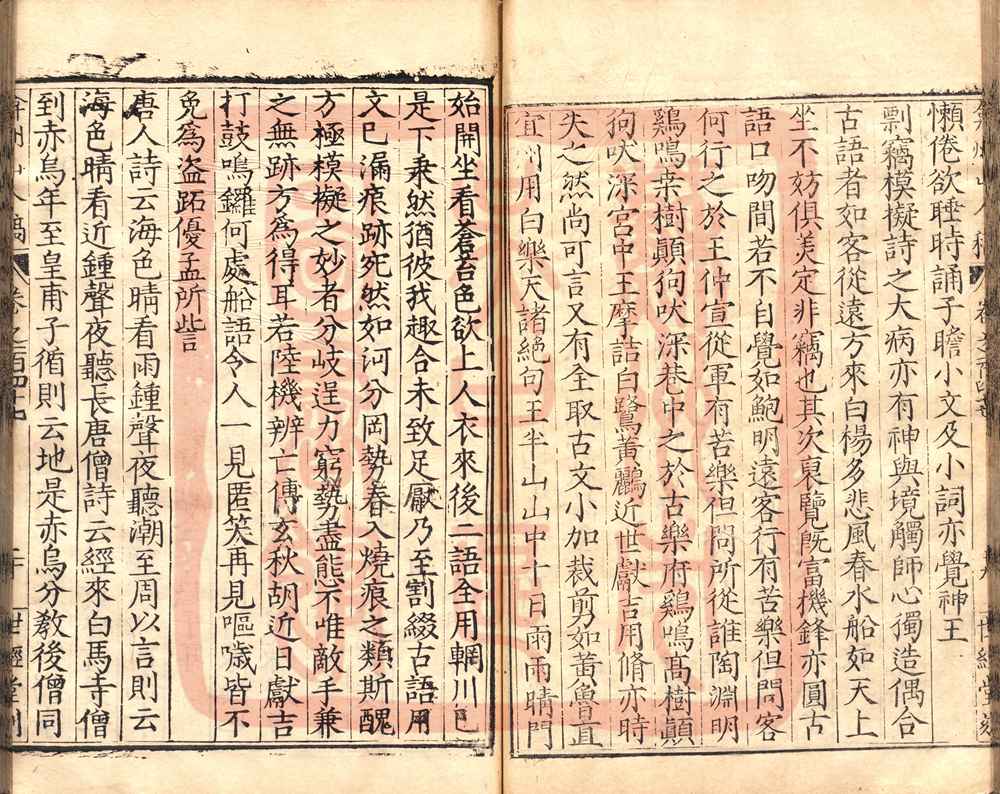 懶倦欲睡時誦子瞻小文及小詞亦覺神王
剽竊模擬詩之大病亦有神與境觸師心獨造偶合
古語者如客從遠方來白楊多悲風春水船如天上
坐不妨俱美定非竊也其次裒覽既富機鋒亦圓古
語口吻間若不自覺如鮑明遠客行有苦樂但問客
何行之於王仲宣從軍有苦樂但問所從誰陶淵明
雞鳴桑樹顛狗吠深巷中之於古樂府雞鳴高樹顛
狗吠深宮中王摩詰白鷺黃鸝近世獻吉用脩亦時
失之然尚可言又有全取古文小加裁剪如黃魯直
宜州用白樂天諸絕句王半山山中十日雨雨晴門
始開坐看蒼苔色欲上人衣來後二語全用輞川已
是下乘然猶彼我趣合未致足厭乃至割綴古語用
文已漏痕跡宛然如河分岡勢春入燒痕之類斯醜
方極模擬之妙者分岐逞力窮勢盡態不唯敵手兼
之無跡方為得耳若陸機辨亡傅玄秋胡近日獻吉
打鼓鳴鑼何處船語令人一見匿笑再見嘔噦皆不
免為盜跖優孟所訾
唐人詩云海色晴看雨鐘聲夜聽潮至周以言則云
海色晴看近鍾聲夜聽長唐僧詩云經來白馬寺僧
到赤烏年至皇甫子循則云地是赤烏分教後僧同
弇州山人稿
卷之一百四十七
世經堂刻